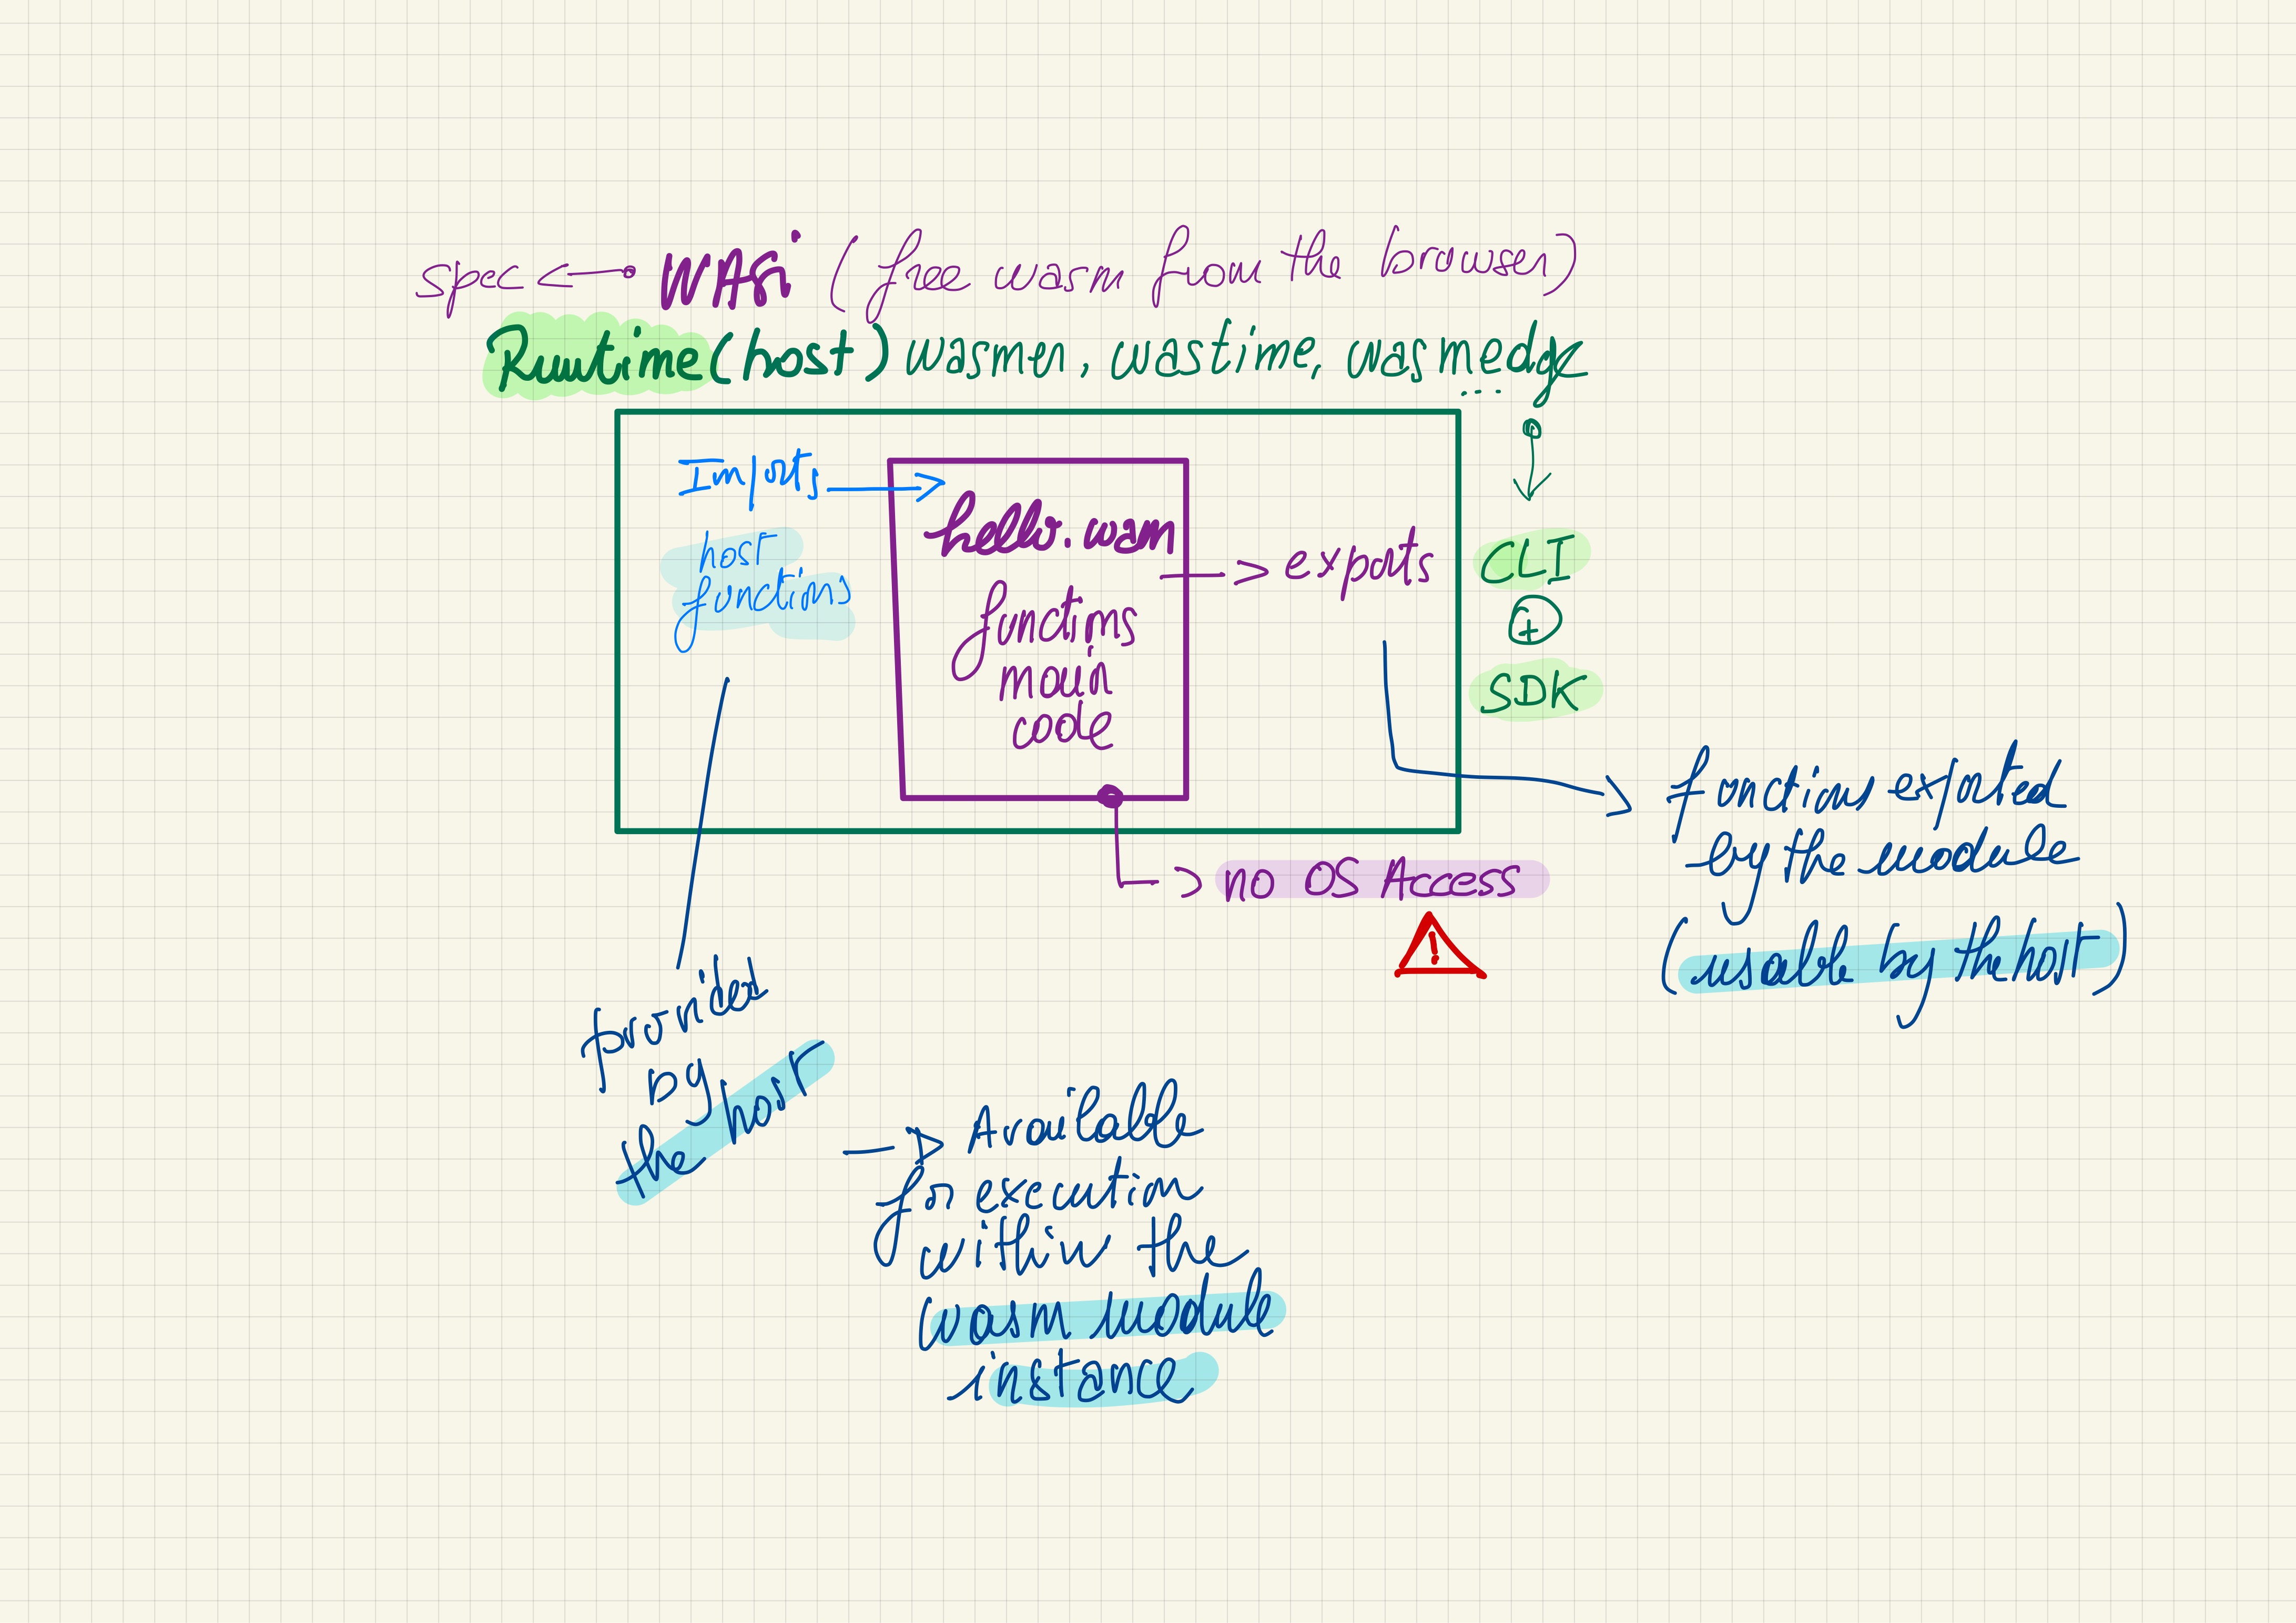 spec WASi (free wasm from the browser)
Runtime (host) wasmer, wastime, wasmedge
...
Imports
host
functions
hello.wasm
functions
main
code
exports
CLI
+
SDK
no OS Access
!
functions exported
by the module
(usable by the host)
provided
by
the host
Available
for execution
within the
wasm module
instance